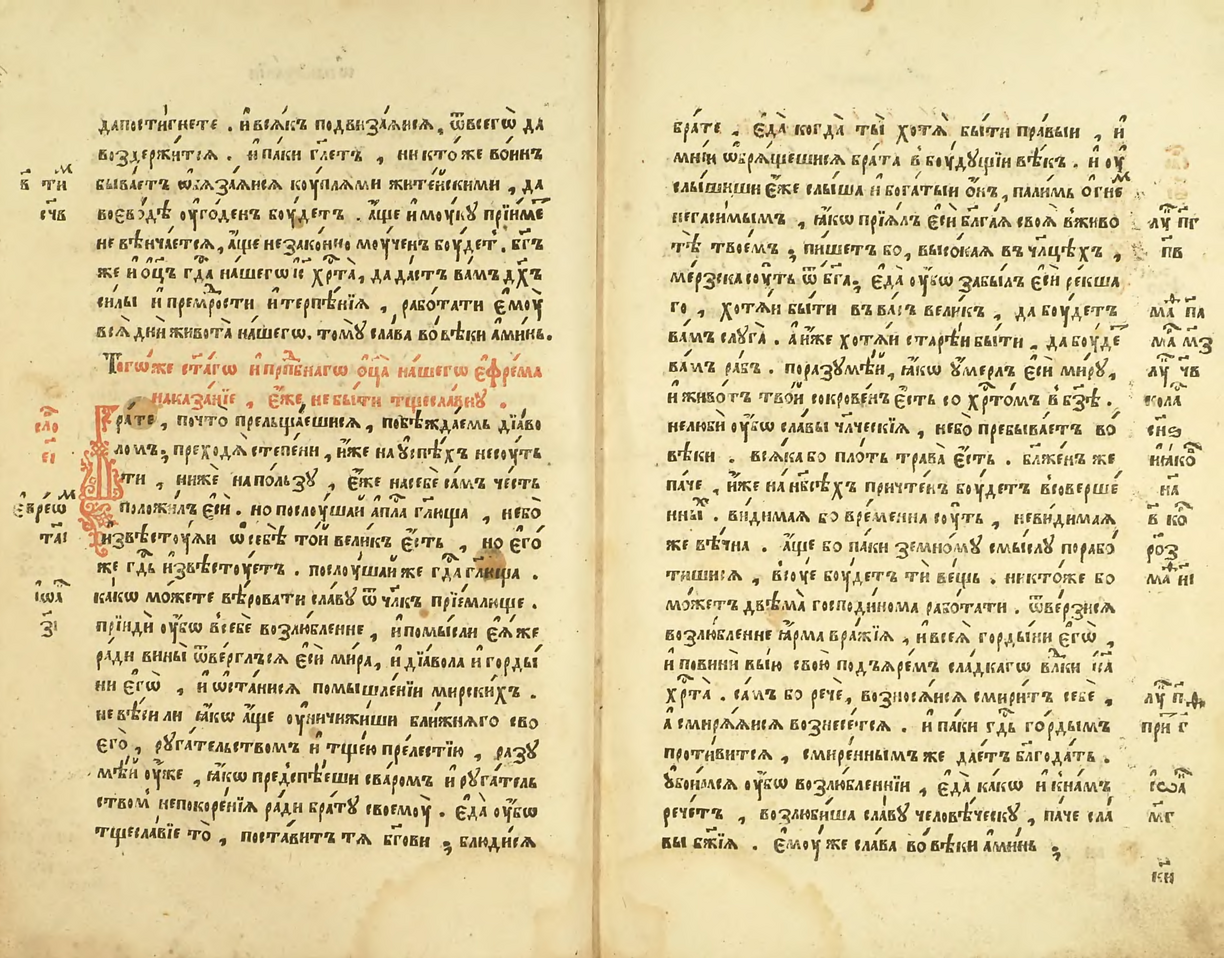 дапостигнете . и҆всѧ́къ подвиза́ѧисѧ, ѿвсегѡ̀ да
возде́ржитсѧ . и҆ па́ки гл҃етъ , никто́же во́инъ
быва́етъ ѡ҆бѧза́ѧисѧ коу́плѧми жите́йскими , да
воево́дѣ оу҆го́денъ боу́детъ . а҆́ще и҆моу́ку прїи́ме
не вѣнча́етсѧ, а҆́ще незако́нно моу́ченъ боу́детъ. бг҃ъ
же и҆ ѻ҆ц҃ъ гд҇а на́шегѡ і҆с хр҇та̀, да да́стъ ва́мъ дх҃ъ
си́лы и҆ прем҇рости и҆терпѣ́нїѧ , рабо́тати є҆моу̀
всѧ̀ днѝ живота̀ на́шегѡ. тому̀ сла́ва во вѣ́ки а҆ми́нь.
Тогѡ́же ст҃а́гѡ и҆ прп҇бнагѡ ѻ҆ц҃а̀ на́шегѡ є҆фре́ма
наказа́нїе , є҆́же, не бы́ти тщесла́вну .
Бра́те , почто̀ прельща́ешисѧ, побѣжда́емь дїа́во
ломъ; преходѧ̀ степе́ни , и҆́же на оу҆спѣ́хъ несоу́ть
ти , нижѐ на по́льзу , є҆́же на себѐ са́мъ че́сть
положи́лъ є҆сѝ . но послоу́шаи а҆п҇ла гл҃юща , не́бо
и҆звѣстоу́ѧи ѡ҆ себѣ̀ то́й вели́къ є҆́сть , но є҆го́
же гд҇ь и҆звѣстоу́етъ . послоу́шаи же гд҇а гл҃юща .
ка́кѡ мо́жете вѣ́ровати сла́ву ѿ чл҃къ прїе́млюще .
прїидѝ оу҆́бѡ в̾ себѐ возлю́бленне , и҆ помы́сли є҆ѧ́же
ра́ди вины̀ ѿве́рглъсѧ є҆сѝ ми́ра, и҆ дїа́вола и҆ горды́
ни є҆гѡ̀ , и҆ ѡ҆ста́нисѧ помышле́нїи мирски́хъ .
не вѣ́си ли ꙗ҆́кѡ а҆́ще оу҆ничижи́ши бли́жнѧго сво
его̀ , руга́тельствомъ и҆ тще́ю пре́лестїю , разу
мѣ́й оу҆́же , ꙗ҆́кѡ предспѣ́еши сва́ромъ и҆ руга́тель
ствомъ непокоре́нїѧ ра́ди бра́ту своемоу̀ . є҆да̀ оу҆́бѡ
тщесла́вїе то̀ , поста́витъ тѧ бг҃ови ; блюди́сѧ
в҃ ти м
сч҃в
сло
є҃і
евреѡм
та҃і
і҆ѡа
з҃і
бра́те , є҆да̀ когда̀ ты̀ хотѧ̀ бы́ти пра́выи , и҆
мні́и ѡ҆брѧ́щешисѧ бра́та в̾ боу́дущїи вѣ́къ . и҆ оу҆
слы́шиши є҆́же слы́ша и҆ бога́тыи ѻ҆́нъ, пали́мь о҆гне́м
негаси́мымъ , ꙗ҆́кѡ прїѧ́лъ є҆сѝ бл҃га́ѧ своѧ̀ в̾ живо
тѣ̀ твое́мъ ; пи́шет бо, высо́каѧ въ чл҃цѣхъ ,
ме́рзска соу́ть ѿ бг҃а, є҆да̀ оу҆́бѡ забы́лъ є҆сѝ ре́кша
го , хотѧ́и бы́ти въ ва́съ вели́къ , да боу́детъ
ва́мъ слуга̀ . а҆ и҆́же хотѧ́и старѣ́и бы́ти , да боу́де
ва́мъ ра́бъ . поразумѣ́и, ꙗ҆́кѡ у҆́мерлъ є҆сѝ ми́ру,
и҆ живо́тъ тво́й сокрове́нъ є҆́сть со хр҇то́мъ в̾ бз҃ѣ .
не люби̂ оу҆́бѡ сла́вы чл҃ческїѧ , не́бо пребыва́етъ во
вѣ́ки . всѧ́ка бо пло́ть трава̀ є҆́сть . бл҃же́нъ же
па́че , и҆́же на нб҃сѣхъ причте́нъ боу́детъ в̾ соверше́
нны́х . ви́димаѧ бо вре́менна соу́ть , неви́димаѧ
же вѣ́чна . а҆́ще бо па́ки земно́му смы́слу порабо́
тишисѧ , всоу́е боу́детъ ти ве́щь . никто́же бо
мо́жетъ двѣма̀ господи́нома рабо́тати . ѿве́рзисѧ
возлю́бленне ꙗ҆рма̀ вра́жїѧ , и҆ всеѧ̀ горды́ни є҆гѡ̀ ,
и҆ повинѝ вы́ю свою̀ подъ ꙗ҆ре́мъ сла́дкагѡ вл҇ки і҆са
хр҇та̀ . са́мъ бо речѐ, возносѧ́исѧ смири́тъ себѐ ,
а҆ смирѧ́ѧисѧ вознесе́тсѧ . и҆ па́ки гд҇ь го́рдымъ
проти́витсѧ , смире́ннымъ же дае́тъ бл҃года́ть .
у҆бои́мсѧ оу҆́бѡ возлю́бленнїи , є҆да̀ ка́кѡ и҆ к̾ на́мъ
рече́тъ , возлюби́ша сла́ву человѣ́ческу , па́че сла́
вы бж҃їѧ . є҆моу́же сла́ва во вѣ́ки а҆ми́нь ;
лу п҃г
п҃в
маф п҃а
маф м҃з
лу ч҃в
кола
сн҃ѳ
и҆а҆ко
н҃а
в҃ ко
ро҃з
маф н҃і
лу п҃ф
при г҃
і҆ѡа
м҃г
к҃и